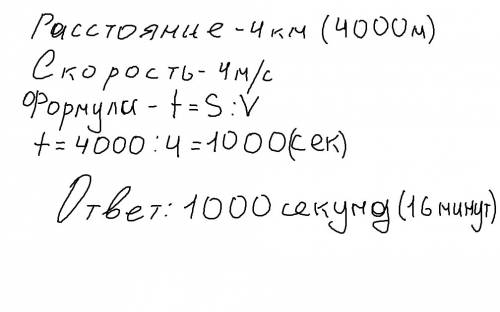 Расстояние - 4 км (4000м)
Скорость - 4м/с
Формула - t = S : V
t = 4000 : 4 = 1000(сек)
Ответ: 1000 секунд (16 минут)